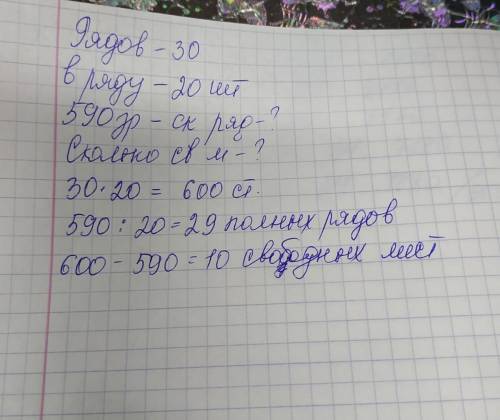 Рядов - 30
в ряду - 20 шт
590 зр - ск ряд - ?
Сколько св м - ?
30 · 20 = 600 ст.
590 : 20 = 29 полных рядов
600 - 590 = 10 свободных мест